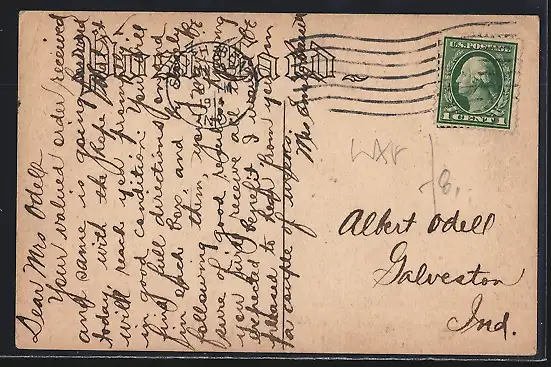 Post Card
U.S. POSTAGE
1 CENT 1
Dear Mrs Odell
Your valued order received
and same is going forward
today, with the hope that
will reach you promptly
in good condition. You will
find full directions and
in each box, and by
following them, you may be
sure of good results
you fail to receive all
expected benefit I would be
pleased to hear from you in
a couple of weeks.
Albert Odell
Galveston
Ind.